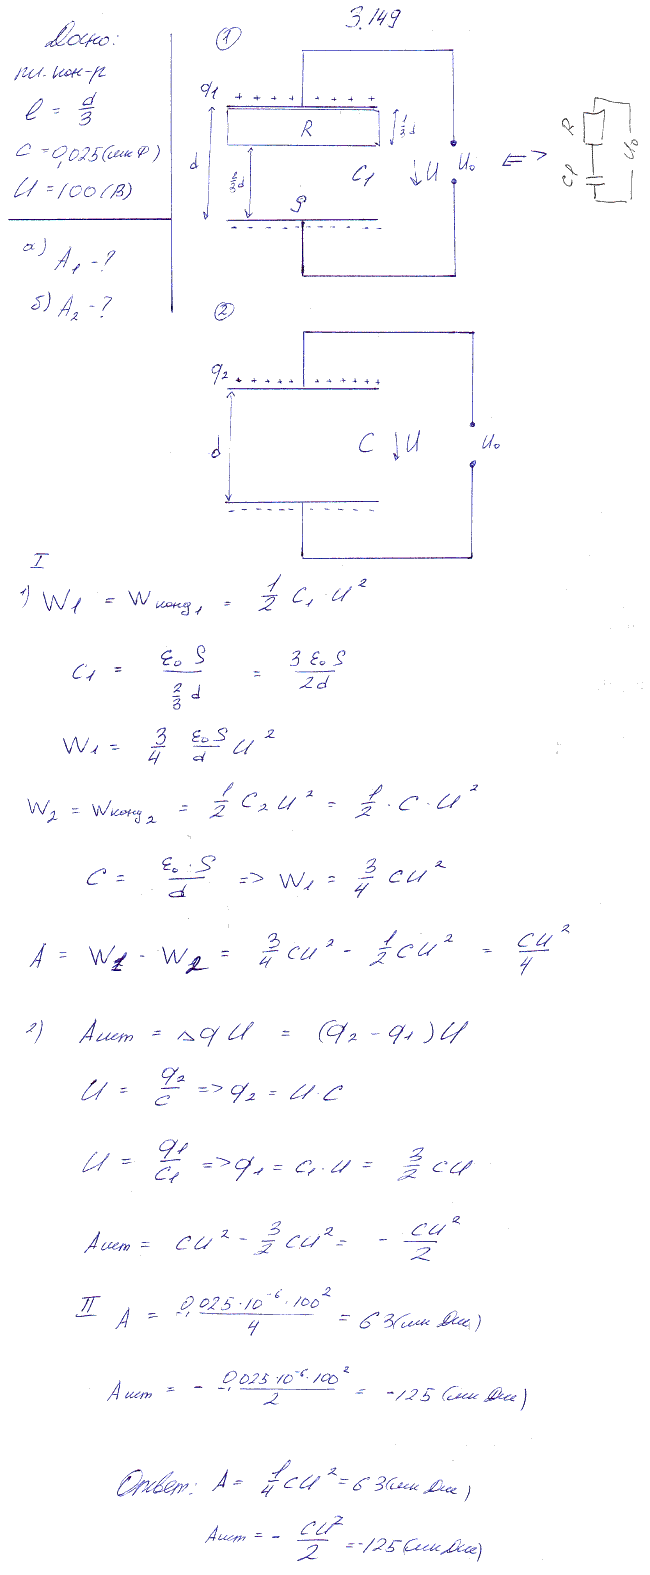 3.149
Дано:
пл. кон-р
l = d/3
C = 0,025 (мкФ)
U = 100 (В)
а) A₁ - ?
б) A₂ - ?
①
q₁ + + + + + + + + +
R
1/3 d
d
2/3 d
C₁ ↓ U
U₀
S
- - - - - - - - -
<=>
R
C₁
U₀
②
q₂ + + + + + + + + +
d
C ↓ U
U₀
- - - - - - - - -
I
1) W₁ = W конд₁ = 1/2 C₁ · U²
C₁ = ε₀ S / (2/3 d) = 3 ε₀ S / 2d
W₁ = 3/4 ε₀S/d U²
W₂ = W конд₂ = 1/2 C₂ U² = 1/2 · C · U²
C = ε₀ · S / d => W₁ = 3/4 CU²
A = W₁ - W₂ = 3/4 CU² - 1/2 CU² = CU²/4
2) A ист = Δq U = (q₂ - q₁) U
U = q₂/C => q₂ = U · C
U = q₁/C₁ => q₁ = C₁ · U = 3/2 CU
A ист = CU² - 3/2 CU² = - CU²/2
II A = 0,025 · 10⁻⁶ · 100² / 4 = 63 (мкДж)
A ист = - 0,025 · 10⁻⁶ · 100² / 2 = -125 (мкДж)
Ответ: A = 1/4 CU² = 63 (мкДж)
A ист = - CU²/2 = -125 (мкДж)